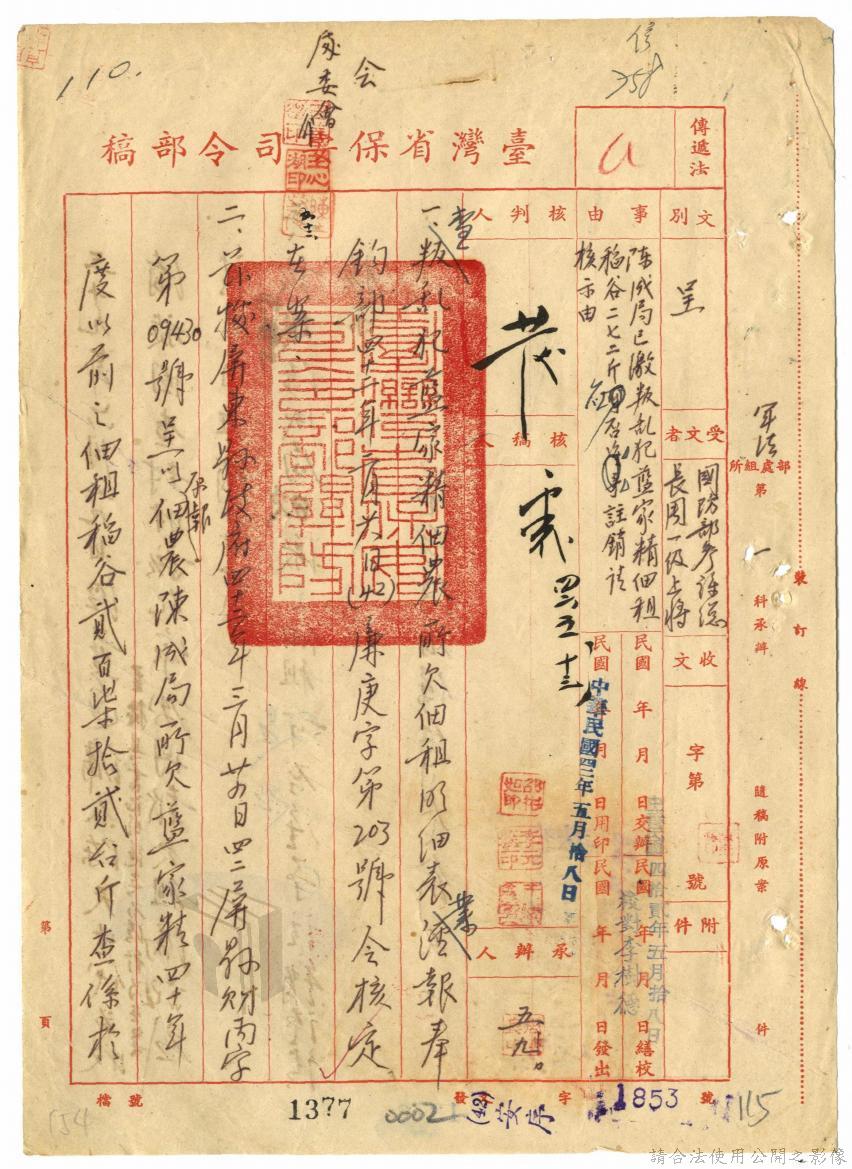 110.
會
臺灣省保安司令部稿
傳遞法
文別
呈
事由
陳成局已繳叛乱犯藍家精佃租
稻谷二七二斤
註銷請
核示由
受文者
國防部參謀總
長周一級上將
核判人
核稿人
承辦人
收文
字第
號
附件
民國 年 月 日交辦
民國 年 月 日繕校
民國 年 月 日用印
民國 年 月 日發出
中華民國四二年五月拾八日
中華民國四拾貳年五月拾八日
校對李樹德
軍法
部處組所
第一科承辦
隨稿附原案 件
裝訂線
一、查叛乱犯藍家精佃農所欠佃租明細表業經報奉
鈞部四十二年
(42)廉庚字第203號令核定
在案
二、茲據屏東縣政府四十二年三月廿
日四二屏縣財丙字
第09430號呈以佃農陳成局所欠藍家精四十年
原報
度以前之佃租稻谷貳百柒拾貳台斤查係於
第 頁
檔號
1377
00021
發 字
(42)安序
1853
號
115
154
請合法使用公開之影像